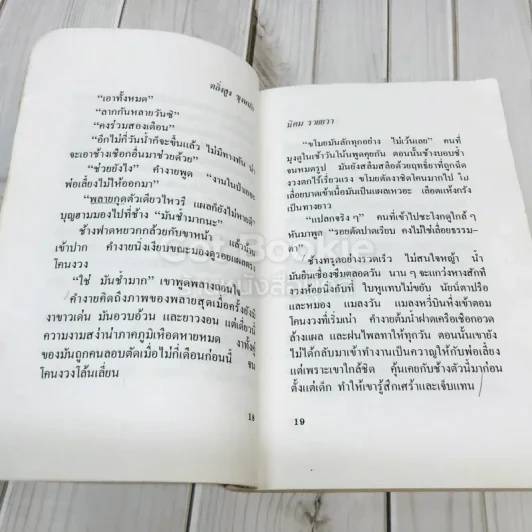 ตลิ่งสูง
“เอาทั้งหมด”
“ลากกันหลายวันซิ”
“คงร่วมสองเดือน”
“อีกไม่กี่วันน้ำก็จะขึ้นแล้ว ไม่มีทางทัน
จะเอาช้างเชือกอื่นมาช่วยด้วย”
“ช่วยยังไง” คำงายพูด “งานในป่าเยอะ
พ่อเลี้ยงไม่ให้ออกมา”
“พลายกุดตัวเดียวไหวรึ แผลก็ยังไม่หายดี”
บุญฮามมองไปที่ช้าง “มันช้ำมากนะ”
ช้างฟาดหยวกกล้วยกับขาหน้า แล้วม้วน
เข้าปาก คำงายนิ่งเงียบขณะมองดูรอยแผลตรง
โคนงวง
“ใช่ มันช้ำมาก” เขาพูดพลางถอนใจ
คำงายคิดถึงภาพของพลายสุดเมื่อครั้งยังมี
งาขาวเด่น มันอวบอ้วน และยาวงอน แต่เดี๋ยวนี้
ความงามสง่าน่าภาคภูมิเหือดหายหมด งาทั้งคู่
ของมันถูกคนลอบตัดเมื่อไม่กี่เดือนก่อนนี้ จน
โคนงวงโล้นเลี่ยน
18
นิคม รายยวา
“ขโมยมันลักทุกอย่าง ไม่เว้นเลย” คนที่
มุงดูในเช้าวันโน้นพูดคุยกัน ตอนนั้นช้างบอบช้ำ
จนหมดรูป มันยังสลึมสลือด้วยฤทธิ์ยาที่ถูกฉีด
งวงตกไร้เรี่ยวแรง ขโมยตัดงาชิดโคนมากไป โ
เลื่อยบาดเข้าเนื้อมันเป็นแผลเหวอะ เลือดแห้งกรัง
เป็นทางยาว
“แปลกจริง ๆ” คนที่เข้าไปชะโงกดูใกล้ ๆ
หันมาพูด “รอยตัดปาดเรียบ คงไม่ใช่เลื่อยธรรม-
ดา”
ช้างทรุดอย่างรวดเร็ว ไม่สนใจหญ้า น้ำ
มันยืนเซื่องซึมตลอดวัน นาน ๆ จะแกว่งหางสักที
งวงห้อยนิ่งกับที่ ใบหูแทบไม่ขยับ นัยน์ตาปรือ
และหมอง แมลงวัน แมลงหวี่บินหึ่งเข้าตอม
โคนงวงที่เริ่มเน่า คำงายต้มน้ำฝาดเครือเชือกอวด
ล้างแผล และฝนไพลทาให้ทุกวัน ตอนนั้นเขายัง
ไม่ได้กลับมาเข้าทำงานเป็นควาญให้กับพ่อเลี้ยง
แต่เพราะเขาใกล้ชิด คุ้นเคยกับช้างตัวนี้มาก่อน
ตั้งแต่เด็ก ทำให้เขารู้สึกเศร้าและเจ็บแทน
19